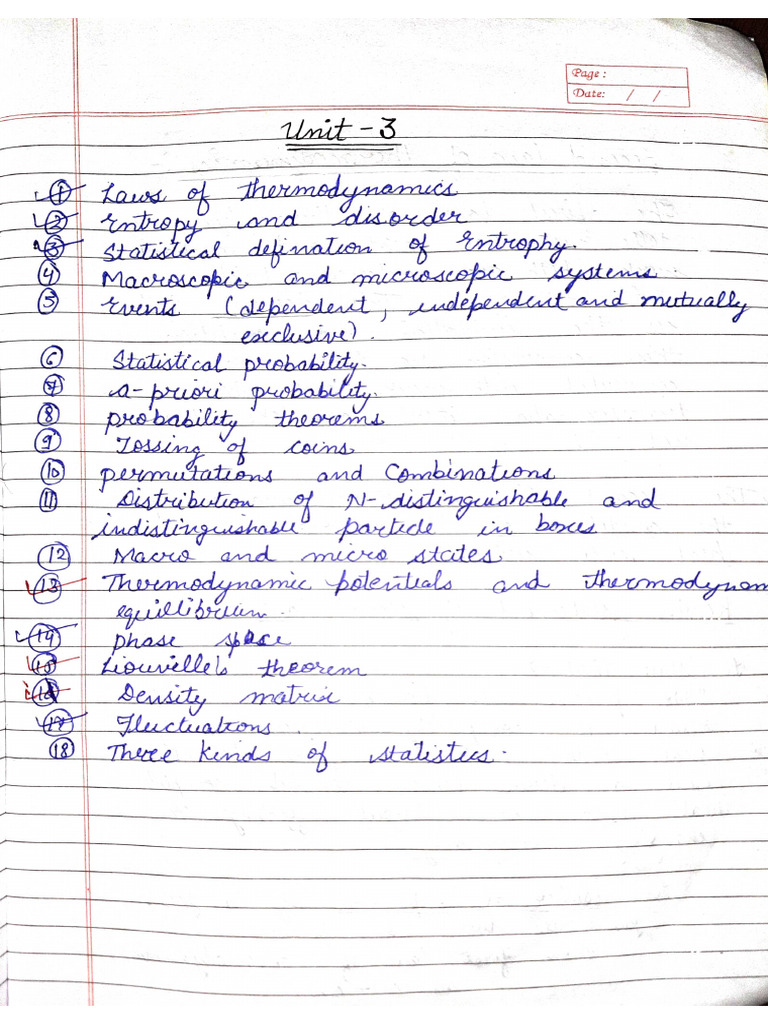 Page :
Date: / /
Unit - 3
① Laws of thermodynamics
② Entropy and disorder
③ Statistical defination of Entrophy.
④ Macroscopic and microscopic systems.
⑤ Events (dependent, independent and mutually
exclusive).
⑥ Statistical probability.
⑦ a-priori probability.
⑧ probability theorems
⑨ Tossing of coins
⑩ permutations and Combinations
⑪ Distribution of N-distinguishable and
indistinguishable particle in boxes
⑫ Macro and micro states
⑬ Thermodynamic potentials and thermodynam
equillibrium.
⑭ phase space
⑮ Liouville's theorem
⑯ Density matrix
⑰ Fluctuations
⑱ Three kinds of statistics.